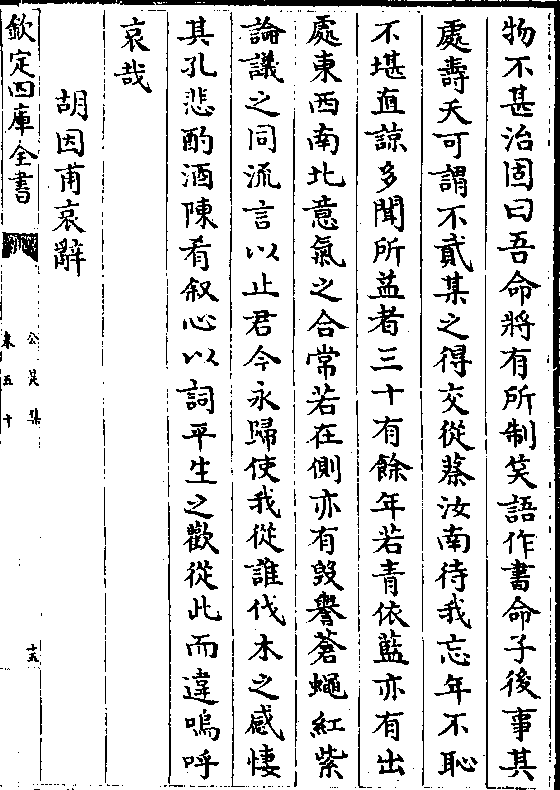 物不甚治固曰吾命將有所制笑語作書命子後事其
處壽夭可謂不貳某之得交從蔡汝南待我忘年不恥
不堪直諒多聞所益者三十有餘年若青依藍亦有出
處東西南北意氣之合常若在側亦有毀譽蒼蠅紅紫
論議之同流言以止君今永歸使我從誰伐木之感悽
其孔悲酌酒陳肴叙心以詞平生之歡從此而違嗚呼
哀哉
胡因甫哀辭
欽定四庫全書
公是集
卷五十
十五